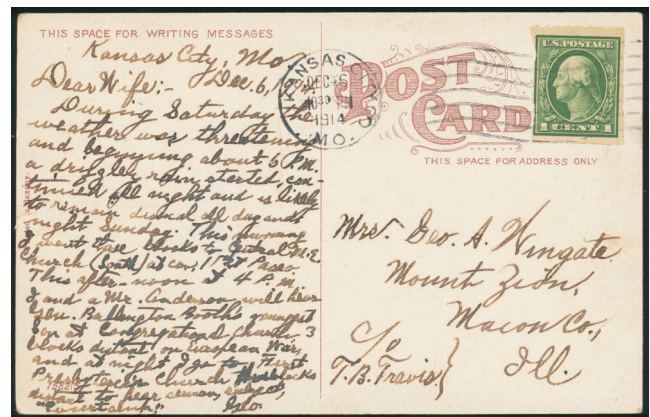 THIS SPACE FOR WRITING MESSAGES
Kansas City, Mo
Dear Wife:- Dec. 6, 1914
During Saturday the
weather was threatening
and beginning about 6 P.M.
a drizzly rain started, con-
tinued all night and is likely
to remain dismal all day and
night Sunday. This morning
I went three blocks to Central M.E.
Church (South) at cor. 11th Paseo.
This after-noon at 4 P.M.
I and a Mr. Anderson will hear
Gen. Ballington Booth's youngest
son at Congregational Church 3
blocks distant on European War,
and at night I go to First
Presbyterian Church blocks
distant to hear sermon, subject,
Geo.
KANSAS CITY
DEC 6
1914
MO.
POST
CARD
U.S. POSTAGE
1 CENT 1
THIS SPACE FOR ADDRESS ONLY
Mrs. Geo. A. Wingate
Mount Zion,
Macon Co.,
c/o
T.B. Travis} Ill.